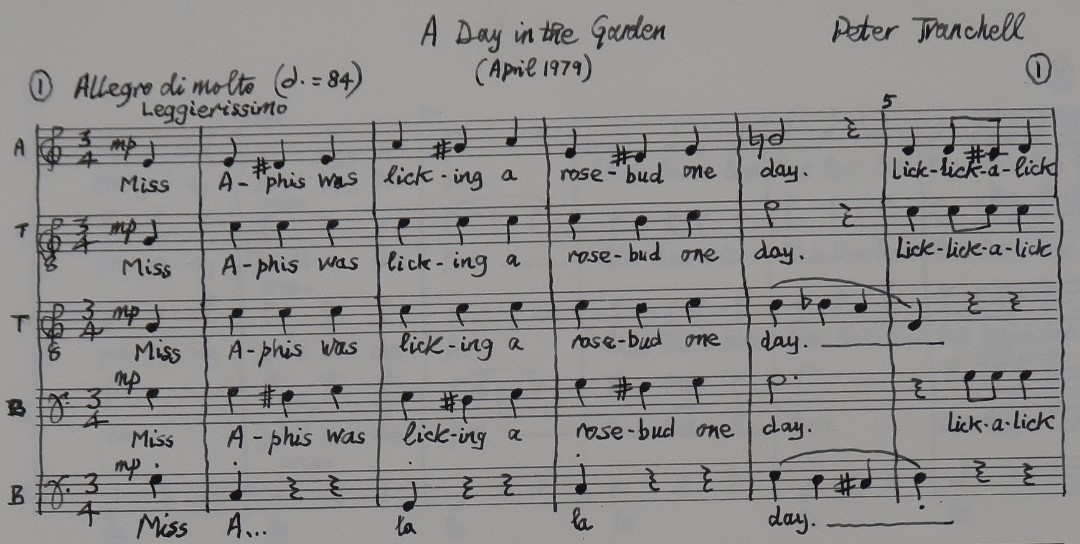 A Day in the Garden Peter Tranchell
(April 1979)
① Allegro di molto (d. = 84) ①
Leggierissimo
5
A 3/4 mp
Miss A-phis was lick-ing a rose-bud one day. Lick-lick-a-lick
T 3/4 mp
8 Miss A-phis was lick-ing a rose-bud one day. Lick-lick-a-lick
T 3/4 mp
8 Miss A-phis was lick-ing a rose-bud one day.
B 3/4 mp
Miss A-phis was lick-ing a rose-bud one day. Lick-a-lick
B 3/4 mp
Miss A... la la day.